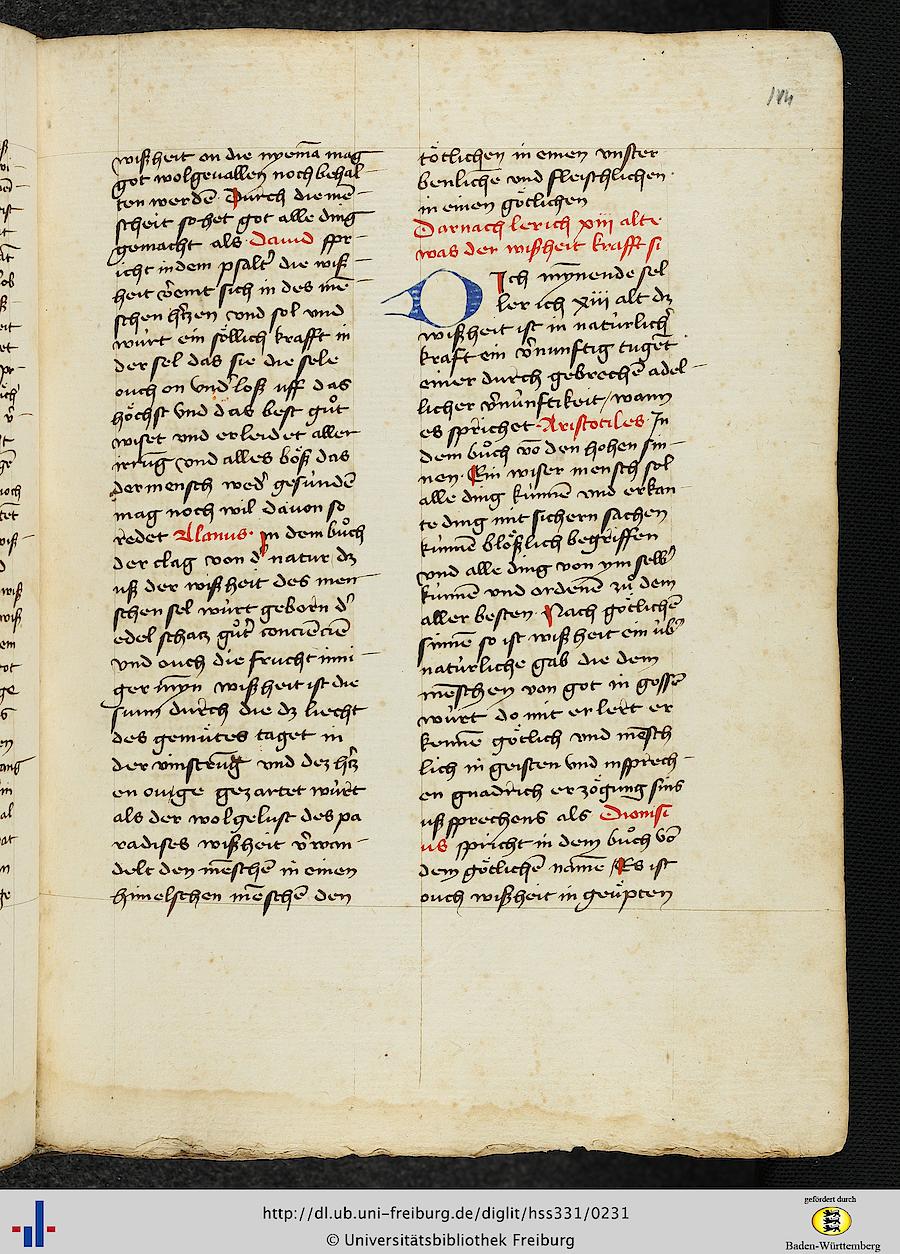 wißheit on die nyemā mag
got wolgeuallen noch behal-
ten werdē Durch die mē-
scheit so het got alle ding
gemacht als Dauid spr-
icht in dem psalt' die wiß-
heit v̄emt sich in des mē-
schen h'zen vnd sol vnd
würt ein söllich krafft in
der sel das sie die sele
ouch on vnd'loß vff das
höchst vnd das best gůt
wiset vnd erleidet aller
irrūg vnd alles böß das
der mensch wed' gesünden
mag noch wil dauon so
redet Alanus. in dem bůch
der clag von d' natur dz
uß der wißheit des men-
schen sel würt geborn d'
edel schatz gůt' conciēciē
vnd ouch die frucht inni-
ger mȳn wißheit ist die
sunn durch die dz liecht
des gemütes taget in
der vinsterūg vnd dez h'tz
en ouge gezartet würt
als der wolgelust des pa
radises wißheit v'wan-
delt den mēschē in einen
himelschen mēschē den
tötlichen in einen vnster
benlichē vnd fleischlichen.
in einen götlichen
Darnach ler ich xiii alte
was der wißheit krafft si
DIch mȳnende sel
ler ich xiii alt dz
wißheit ist in natürlich'
kraft ein v'nunftig tugēt
einer durch gebrechē adel-
licher v'nünftikeit / wann
es sprichet Aristotiles In
dem bůch vō den hohen sin-
nen. Ein wiser mensch sol
alle ding künnē vnd erkan-
te ding mit sichern sachen
künnē blößlich begriffen
vnd alle ding von ym selb'
künnē vnd ordenē zů dem
aller besten. Nach götlichē
sinnē so ist wißheit ein üb'
natürliche gab die dem
mēschen von got in gossē
würt do mit er lert er
kennē götlich vnd mēsch
lich in geisten vnd insprech-
en gnadrich erzögung sins
ußsprechens als Dionisi
us spricht in dem bůch vō
dem götlichē namē Es ist
ouch wißheit in geüpten
http://dl.ub.uni-freiburg.de/diglit/hss331/0231
© Universitätsbibliothek Freiburg
gefördert durch
Baden-Württemberg